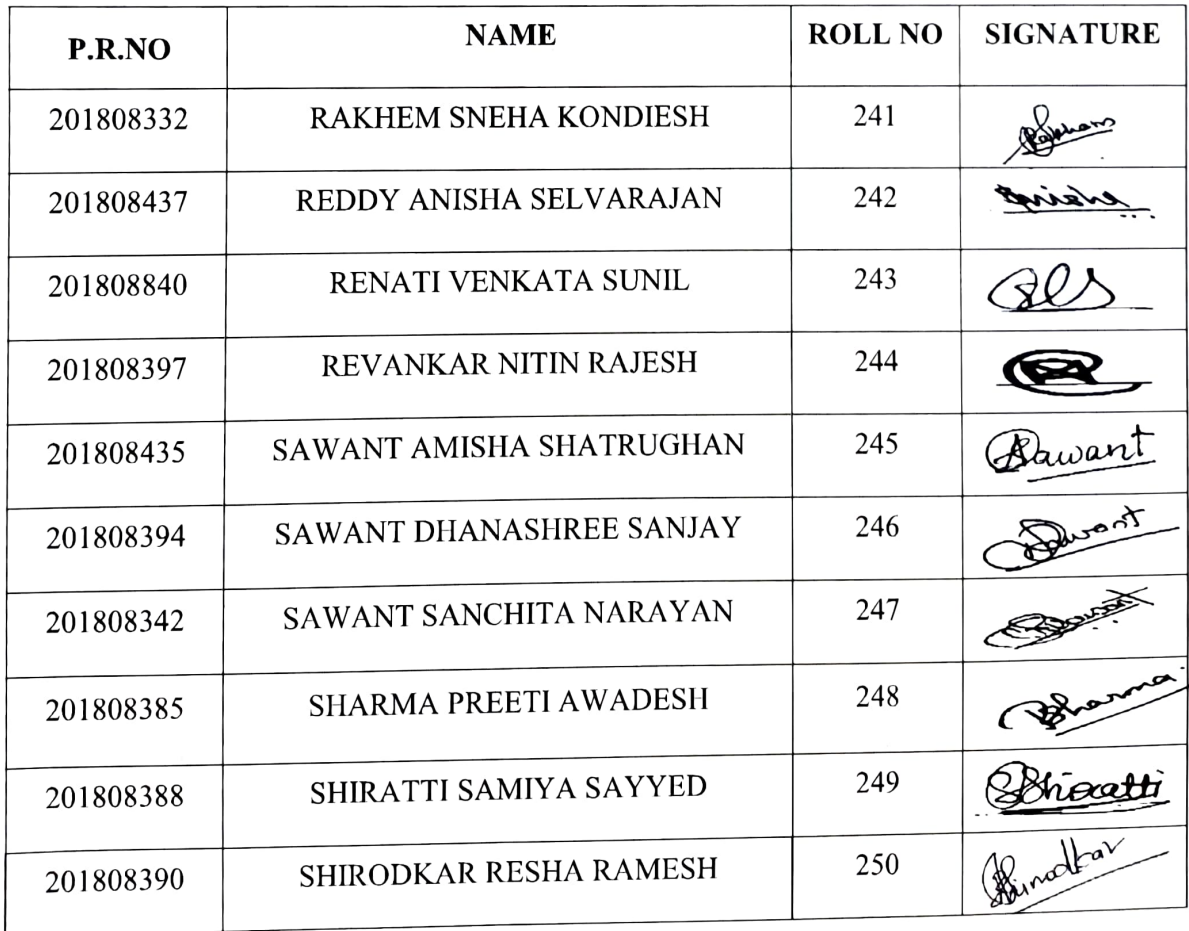 P.R.NO NAME ROLL NO SIGNATURE
201808332 RAKHEM SNEHA KONDIESH 241 Rakhem
201808437 REDDY ANISHA SELVARAJAN 242 Anisha
201808840 RENATI VENKATA SUNIL 243
201808397 REVANKAR NITIN RAJESH 244
201808435 SAWANT AMISHA SHATRUGHAN 245 Sawant
201808394 SAWANT DHANASHREE SANJAY 246 Sawant
201808342 SAWANT SANCHITA NARAYAN 247 Sawant
201808385 SHARMA PREETI AWADESH 248 Sharma
201808388 SHIRATTI SAMIYA SAYYED 249 Shiratti
201808390 SHIRODKAR RESHA RAMESH 250 Shirodkar